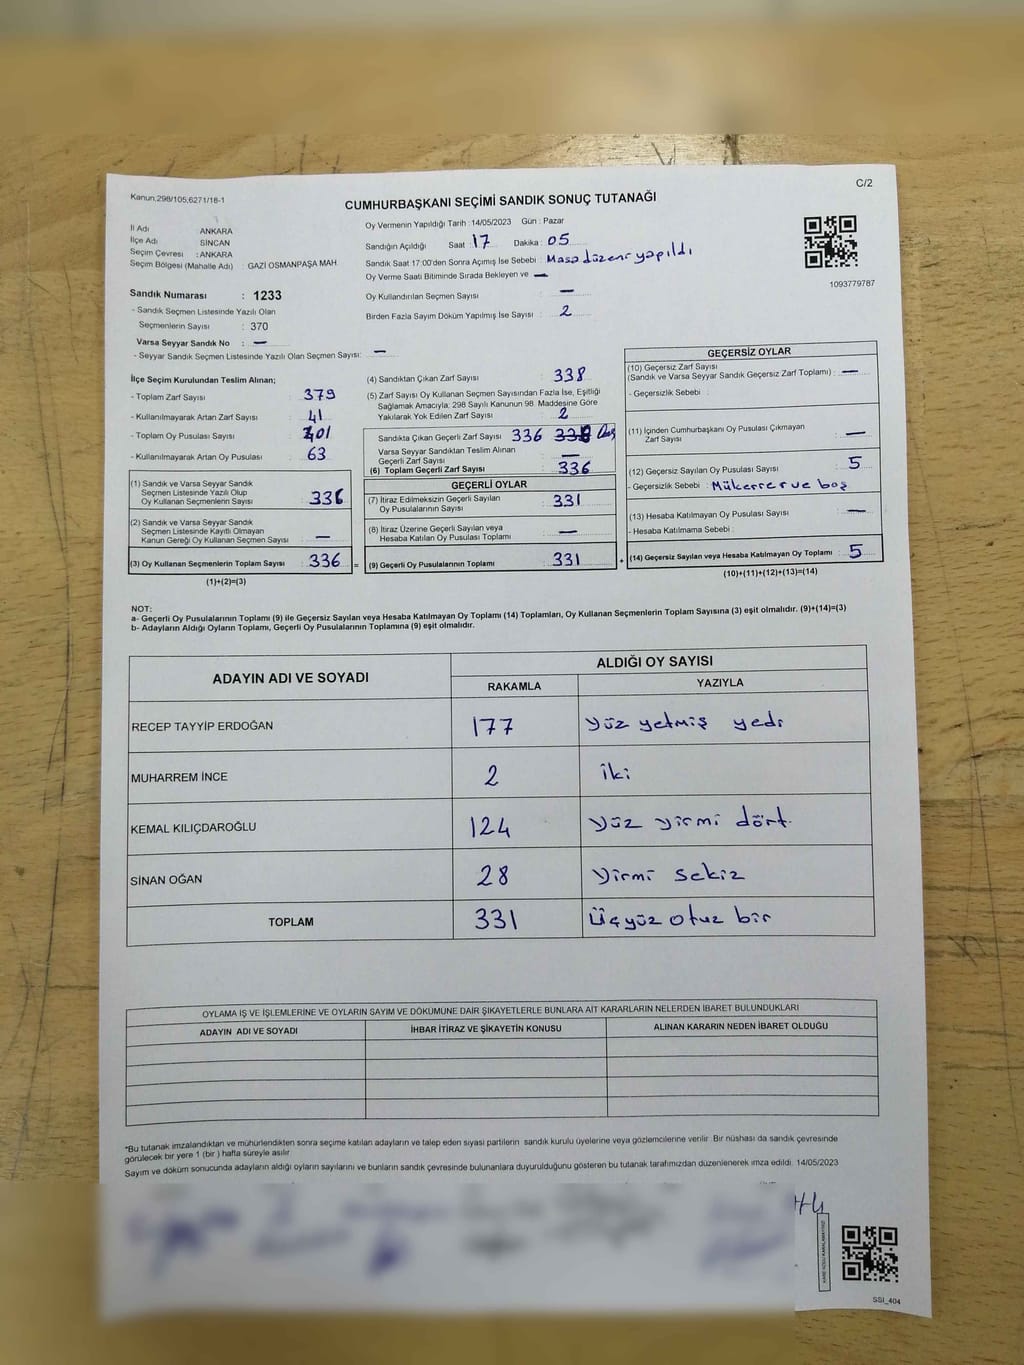 Kanun,298/105;6271/18-1
C/2
CUMHURBAŞKANI SEÇİMİ SANDIK SONUÇ TUTANAĞI
İl Adı ANKARA
İlçe Adı SİNCAN
Seçim Çevresi : ANKARA
Seçim Bölgesi (Mahalle Adı) : GAZİ OSMANPAŞA MAH.
Sandık Numarası : 1233
- Sandık Seçmen Listesinde Yazılı Olan
Seçmenlerin Sayısı : 370
Varsa Seyyar Sandık No : —
- Seyyar Sandık Seçmen Listesinde Yazılı Olan Seçmen Sayısı: —
Oy Vermenin Yapıldığı Tarih :14/05/2023 Gün : Pazar
Sandığın Açıldığı Saat : 17 Dakika : 05
Sandık Saat 17:00'den Sonra Açımış İse Sebebi : Masa düzeni yapıldı
Oy Verme Saati Bitiminde Sırada Bekleyen ve —
Oy Kullandırılan Seçmen Sayısı : —
Birden Fazla Sayım Döküm Yapılmış İse Sayısı : 2
1093779787
İlçe Seçim Kurulundan Teslim Alınan;
- Toplam Zarf Sayısı : 379
- Kullanılmayarak Artan Zarf Sayısı : 41
- Toplam Oy Pusulası Sayısı : 401
- Kullanılmayarak Artan Oy Pusulası : 63
(1) Sandık ve Varsa Seyyar Sandık
Seçmen Listesinde Yazılı Olup
Oy Kullanan Seçmenlerin Sayısı : 336
(2) Sandık ve Varsa Seyyar Sandık
Seçmen Listesinde Kayıtlı Olmayan
Kanun Gereği Oy Kullanan Seçmen Sayısı : —
(3) Oy Kullanan Seçmenlerin Toplam Sayısı : 336 =
(1)+(2)=(3)
(4) Sandıktan Çıkan Zarf Sayısı : 338
(5) Zarf Sayısı Oy Kullanan Seçmen Sayısından Fazla İse, Eşitliği
Sağlamak Amacıyla, 298 Sayılı Kanunun 98. Maddesine Göre
Yakılarak Yok Edilen Zarf Sayısı : 2
Sandıkta Çıkan Geçerli Zarf Sayısı : 336 338
Varsa Seyyar Sandıktan Teslim Alınan
Geçerli Zarf Sayısı : —
(6) Toplam Geçerli Zarf Sayısı : 336
GEÇERLİ OYLAR
(7) İtiraz Edilmeksizin Geçerli Sayılan
Oy Pusulalarının Sayısı : 331
(8) İtiraz Üzerine Geçerli Sayılan veya
Hesaba Katılan Oy Pusulası Toplamı : —
(9) Geçerli Oy Pusulalarının Toplamı : 331 +
GEÇERSİZ OYLAR
(10) Geçersiz Zarf Sayısı
(Sandık ve Varsa Seyyar Sandık Geçersiz Zarf Toplamı) : —
- Geçersizlik Sebebi :
(11) İçinden Cumhurbaşkanı Oy Pusulası Çıkmayan
Zarf Sayısı : —
(12) Geçersiz Sayılan Oy Pusulası Sayısı : 5
- Geçersizlik Sebebi : Mükerrer ve boş
(13) Hesaba Katılmayan Oy Pusulası Sayısı : —
- Hesaba Katılmama Sebebi :
(14) Geçersiz Sayılan veya Hesaba Katılmayan Oy Toplamı : 5
(10)+(11)+(12)+(13)=(14)
NOT:
a- Geçerli Oy Pusulalarının Toplamı (9) ile Geçersiz Sayılan veya Hesaba Katılmayan Oy Toplamı (14) Toplamları, Oy Kullanan Seçmenlerin Toplam Sayısına (3) eşit olmalıdır. (9)+(14)=(3)
b- Adayların Aldığı Oyların Toplamı, Geçerli Oy Pusulalarının Toplamına (9) eşit olmalıdır.
ADAYIN ADI VE SOYADI ALDIĞI OY SAYISI
RAKAMLA YAZIYLA
RECEP TAYYİP ERDOĞAN 177 yüz yetmiş yedi
MUHARREM İNCE 2 iki
KEMAL KILIÇDAROĞLU 124 yüz yirmi dört
SİNAN OĞAN 28 Yirmi sekiz
TOPLAM 331 Üçyüz otuz bir
OYLAMA İŞ VE İŞLEMLERİNE VE OYLARIN SAYIM VE DÖKÜMÜNE DAİR ŞİKAYETLERLE BUNLARA AİT KARARLARIN NELERDEN İBARET BULUNDUKLARI
ADAYIN ADI VE SOYADI İHBAR İTİRAZ VE ŞİKAYETİN KONUSU ALINAN KARARIN NEDEN İBARET OLDUĞU
*Bu tutanak imzalandıktan ve mühürlendikten sonra seçime katılan adayların ve talep eden siyasi partilerin sandık kurulu üyelerine veya gözlemcilerine verilir. Bir nüshası da sandık çevresinde
görülecek bir yere 1 (bir ) hafta süreyle asılır.
Sayım ve döküm sonucunda adayların aldığı oyların sayılarını ve bunların sandık çevresinde bulunanlara duyurulduğunu gösteren bu tutanak tarafımızdan düzenlenerek imza edildi. 14/05/2023
SSI_404